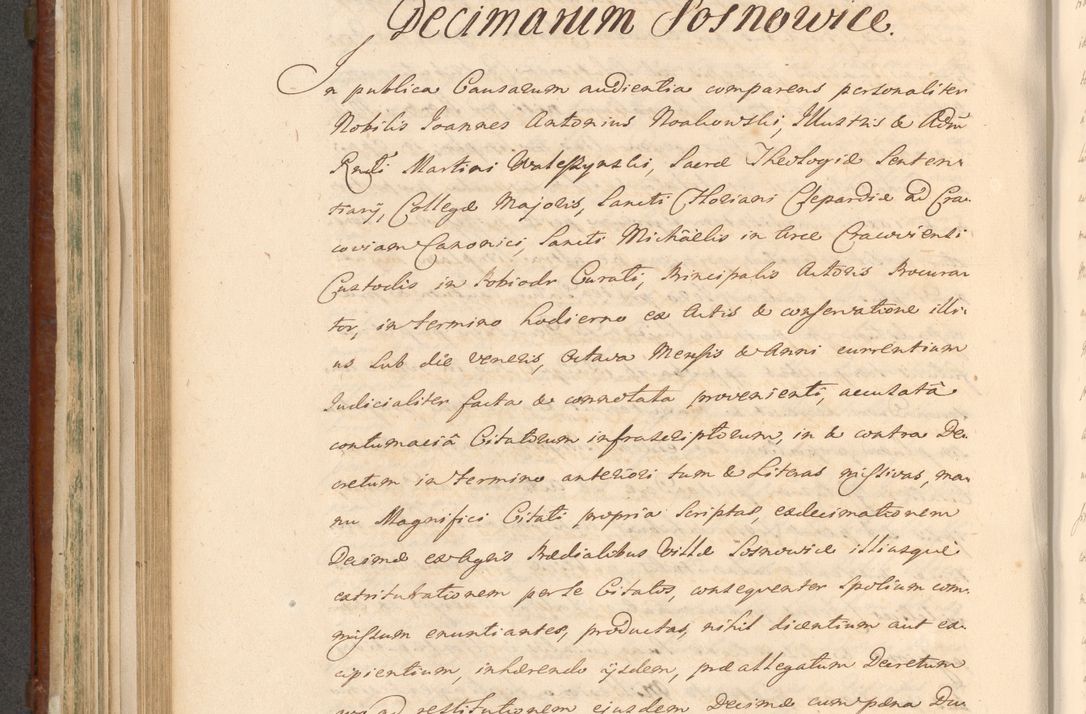 Decimarum Sosnowice.
In publica Causarum audientia comparens personaliter
Nobilis Joannes Antonius Noakowski, Illustris & Adm
Rndi Martini Waleszynski, Sacræ Theologiæ Senten
tiarij, Collegæ Majoris, Sancti Floriani Clepardiæ ad Cra-
coviam Canonici, Sancti Michäelis in Arce Cracoviensi
Custodis in Pobiedr Curati, Principalis Actoris Procura
tor, in termino hodierno ex Actis & conservatione illi-
us sub die Veneris, Octava Mensis & Anni currentium
Judicialiter facta & connotata provenienti, accusatâ
contumaciâ Citatorum infrascriptorum, in & contra De-
cretum in termino anteriori tum & Literas missivas, ma-
nu Magnifici Citati propria scriptas, exdecimationem
Decimæ ex Agris Prædialibus Villæ Sosnowice illiusque
extriturationem per se Citatos, consequenter spolium com-
missum enuntiantes, productas, nihil dicentium aut ex-
cipientium, inhærendo ijsdem, præallegatum Decretum
restitutionem eiusdem Decimæ cum pæna Du